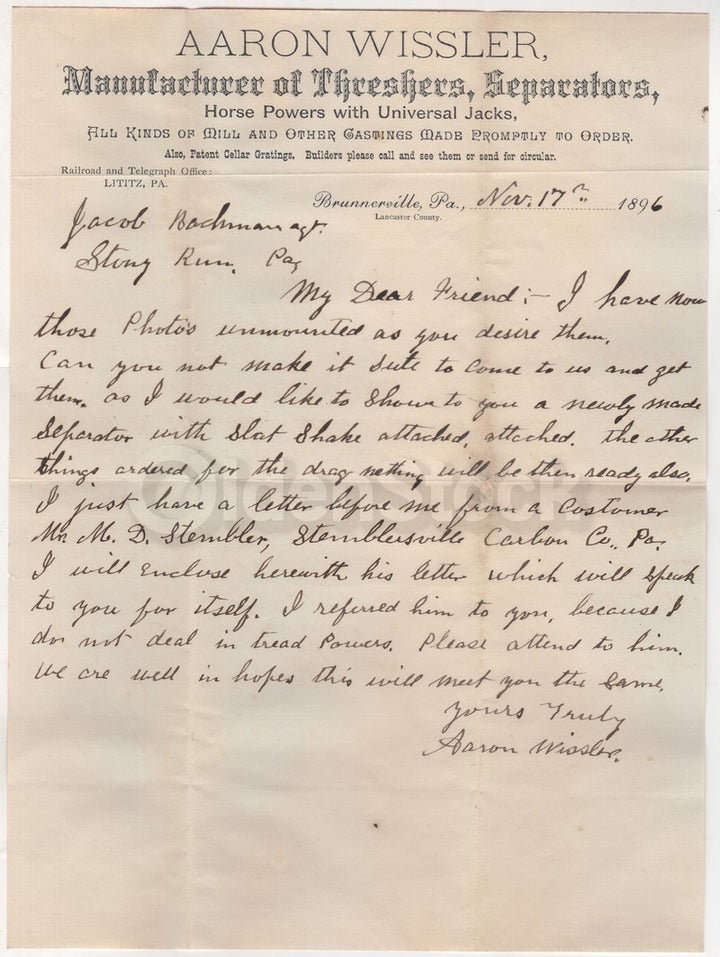 AARON WISSLER,
Manufacturer of Threshers, Separators,
Horse Powers with Universal Jacks,
ALL KINDS OF MILL AND OTHER CASTINGS MADE PROMPTLY TO ORDER.
Also, Patent Cellar Gratings. Builders please call and see them or send for circular.
Railroad and Telegraph Office:
LITITZ, PA.
Brunnerville, Pa., Nov. 17th 1896
Lancaster County.
Jacob Bachman agt.
Stony Run, Pa,
My Dear Friend:- I have now
those Photo's unmounted as you desire them,
Can you not make it sute to come to us and get
them. as I would like to show to you a newly made
Separator with Slat Shake attached, attached. the other
things ordered for the drag will be then ready also.
I just have a letter before me from a Costomer
Mr. M. D. Stembler, Stemblersville Carbon Co., Pa.
I will enclose herewith his letter which will speak
to you for itself. I referred him to you, because I
do not deal in tread Powers. Please attend to him.
We are well in hopes this will meet you the same,
Yours Truly
Aaron Wissler.
OldenStock